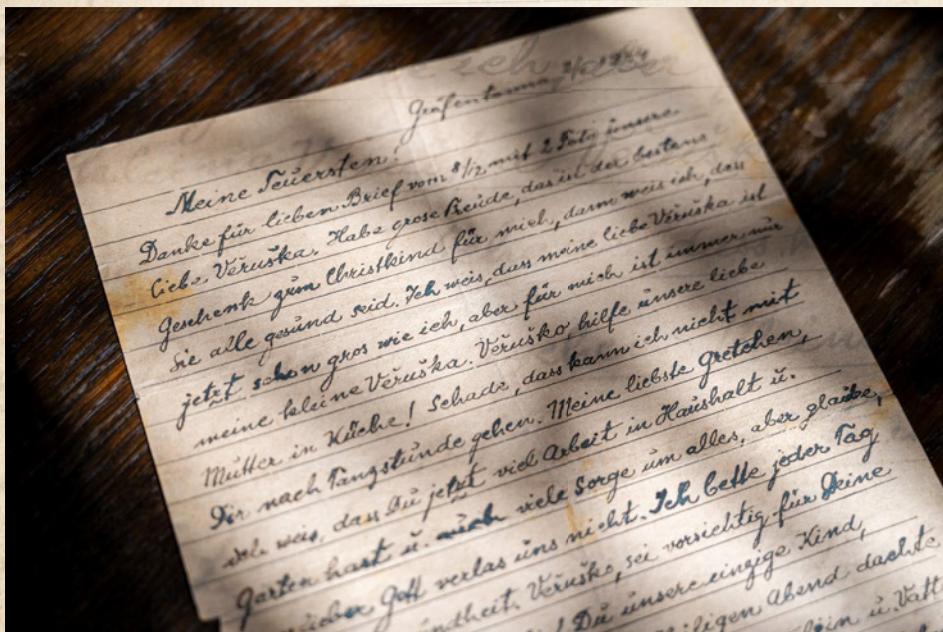 Gräfentonna,
Meine Teuersten!
Danke für lieben Brief vom 8/12 mit 2 Foto unsere
liebe Věruška. Habe grose Freude, das ist der bestens
Geschenk zum Christkind für mich, dann weis ich, dass
Sie alle gesund seid. Ich weis, dass meine liebe Věruška ist
jetzt schon gros wie ich, aber für mich ist immer nur
meine kleine Věruška. Věruško, hilfe unsere liebe
Mutter in Küche! Schade, dass kann ich nicht mit
Dir nach Tanzstunde gehen. Meine liebste Gretchen,
ich weis, dass Du jetzt viel Arbeit in Haushalt u.
Garten hast u. auch viele Sorge um alles, aber glaube,
lieber Gott verlas uns nicht. Ich bette jeder Tag
Věruško, sei vorsichtig für Deine
Du unsere einzige Kind,
Abend dachte
u. Vatt